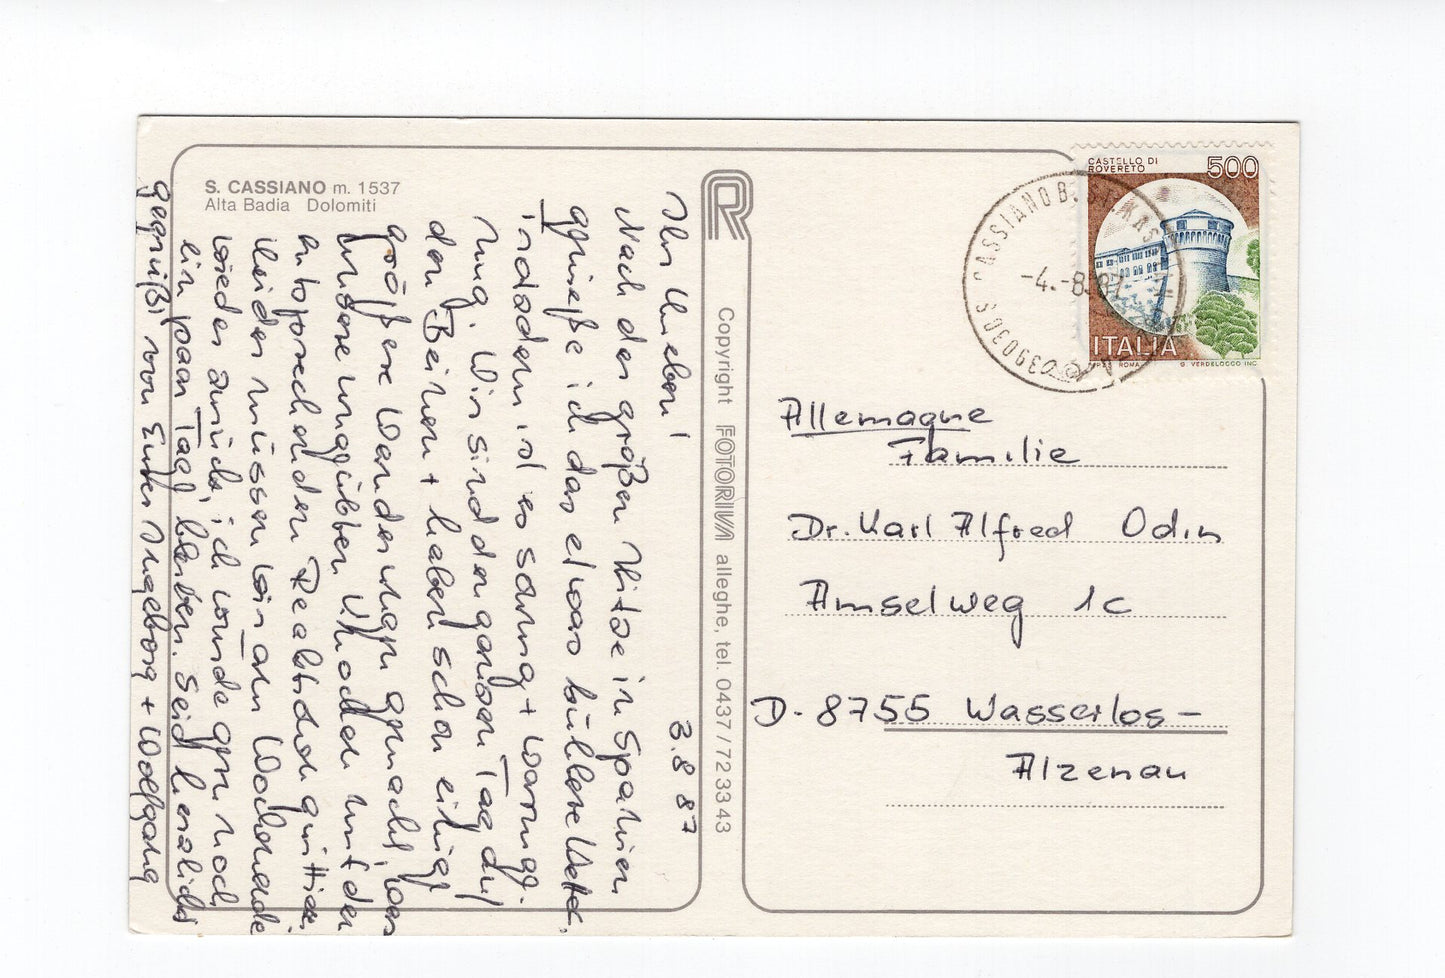 S. CASSIANO m. 1537
Alta Badia Dolomiti
3.8 87
Ihr Lieben!
Nach der großen Hitze in Spanien
genieße ich das etwas kühlere Wetter,
trotzdem ist es sonnig + warm genug.
Wir sind den ganzen Tag auf
den Beinen + haben schon einige
größere Wanderungen gemacht, was
unsere ungeübten Knochen mit den
entsprechenden Reaktionen quittieren,
leider müssen wir am Wochenende
wieder zurück, ich würde gern noch
ein paar Tage bleiben. Seid herzlichst
gegrüßt von Euren Ingeborg + Wolfgang
R
Copyright FOTORIVA alleghe, tel. 0437/723343
CASTELLO DI
ROVERETO
500
ITALIA
ROMA
G. VERDELOCCO INC.
S. CASSIANO B.
-4.-8.87
39030
Allemagne
Familie
Dr. Karl Alfred Odin
Amselweg 1c
D-8755 Wasserlos-
Alzenau